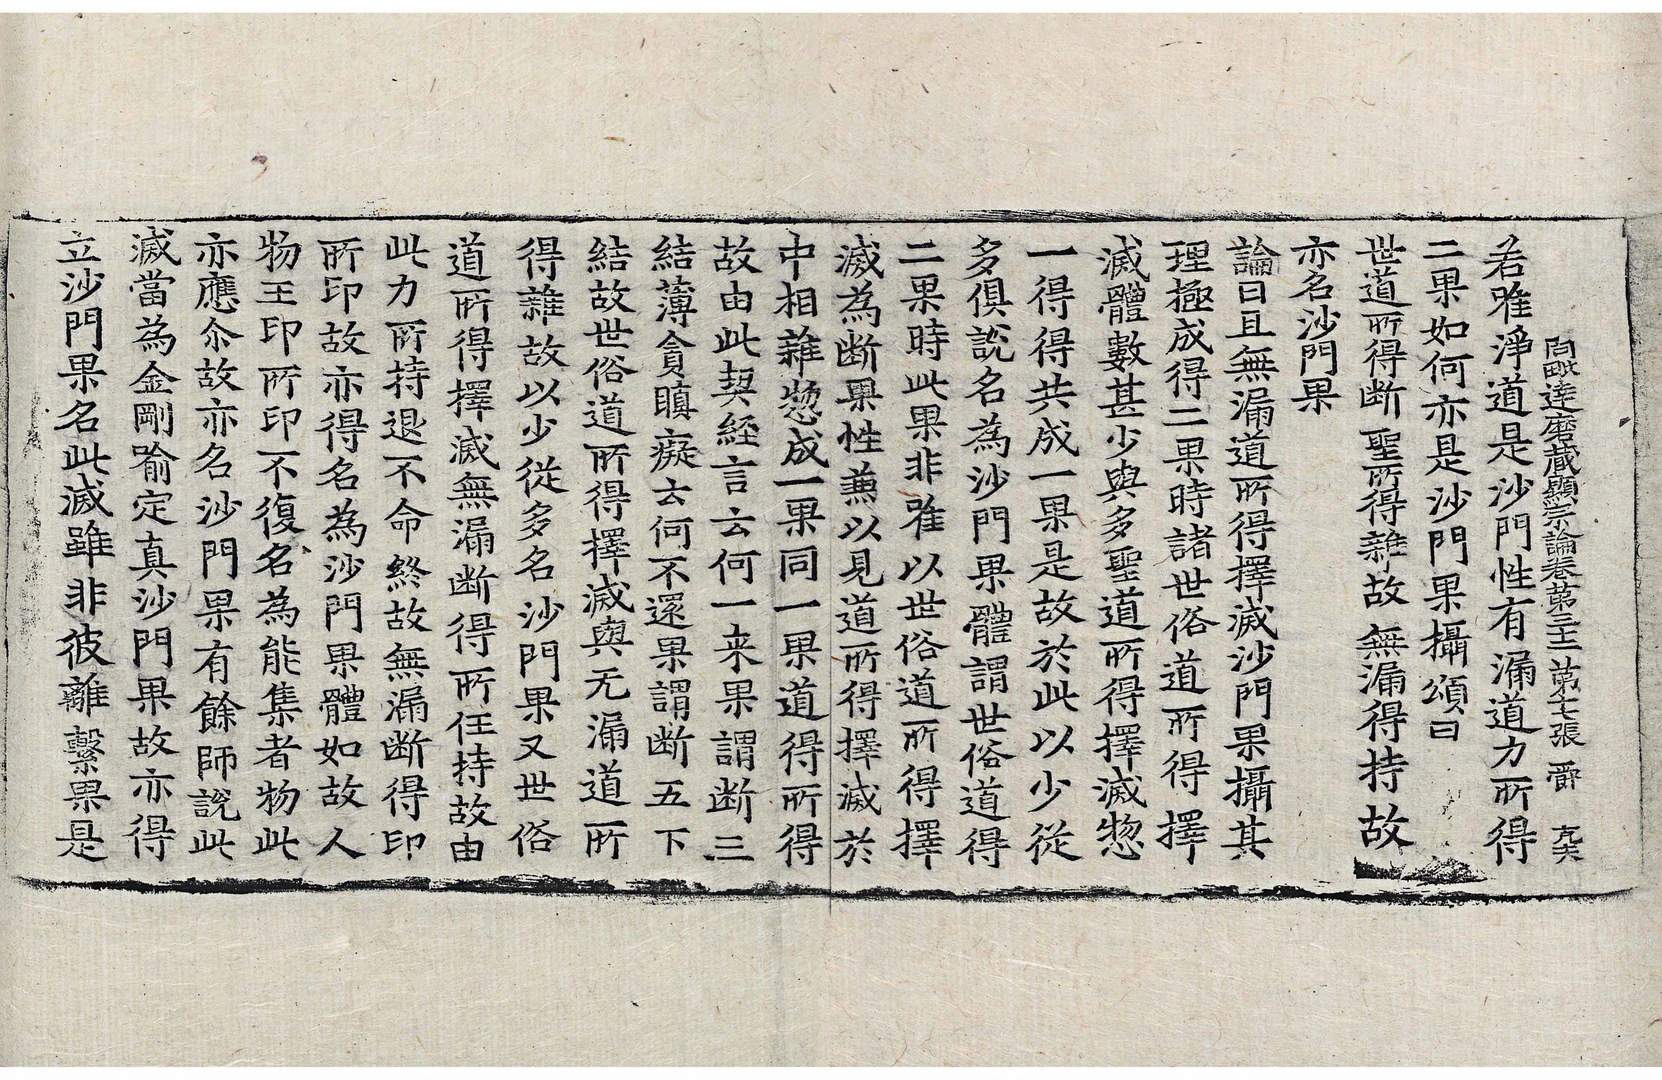 阿毗達磨蔵顯宗論卷第三十二 第十七張 爵
若唯淨道是沙門性有漏道力所得
二果如何亦是沙門果攝頌曰
世道所得断 聖所得雜故 無漏得持故
亦名沙門果
論曰且無漏道所得擇滅沙門果攝其
理極成得二果時諸世俗道所得擇
滅體數甚少與多聖道所得擇滅惣
一得得共成一果是故於此以少從
多俱說名為沙門果體謂世俗道得
二果時此果非唯以世俗道所得擇
滅為断果性兼以見道所得擇滅於
中相雜惣成一果同一果道得所得
故由此契經言云何一来果謂断三
結薄貪瞋癡云何不還果謂断五下
結故世俗道所得擇滅與无漏道所
得雜故以少從多名沙門果又世俗
道所得擇滅無漏断得所任持故由
此力所持退不命終故無漏断得印
所印故亦得名為沙門果體如故人
物王印所印不復名為能集者物此
亦應尒故亦名沙門果有餘師說此
滅當為金剛喻定真沙門果故亦得
立沙門果名此滅雖非彼離繫果是